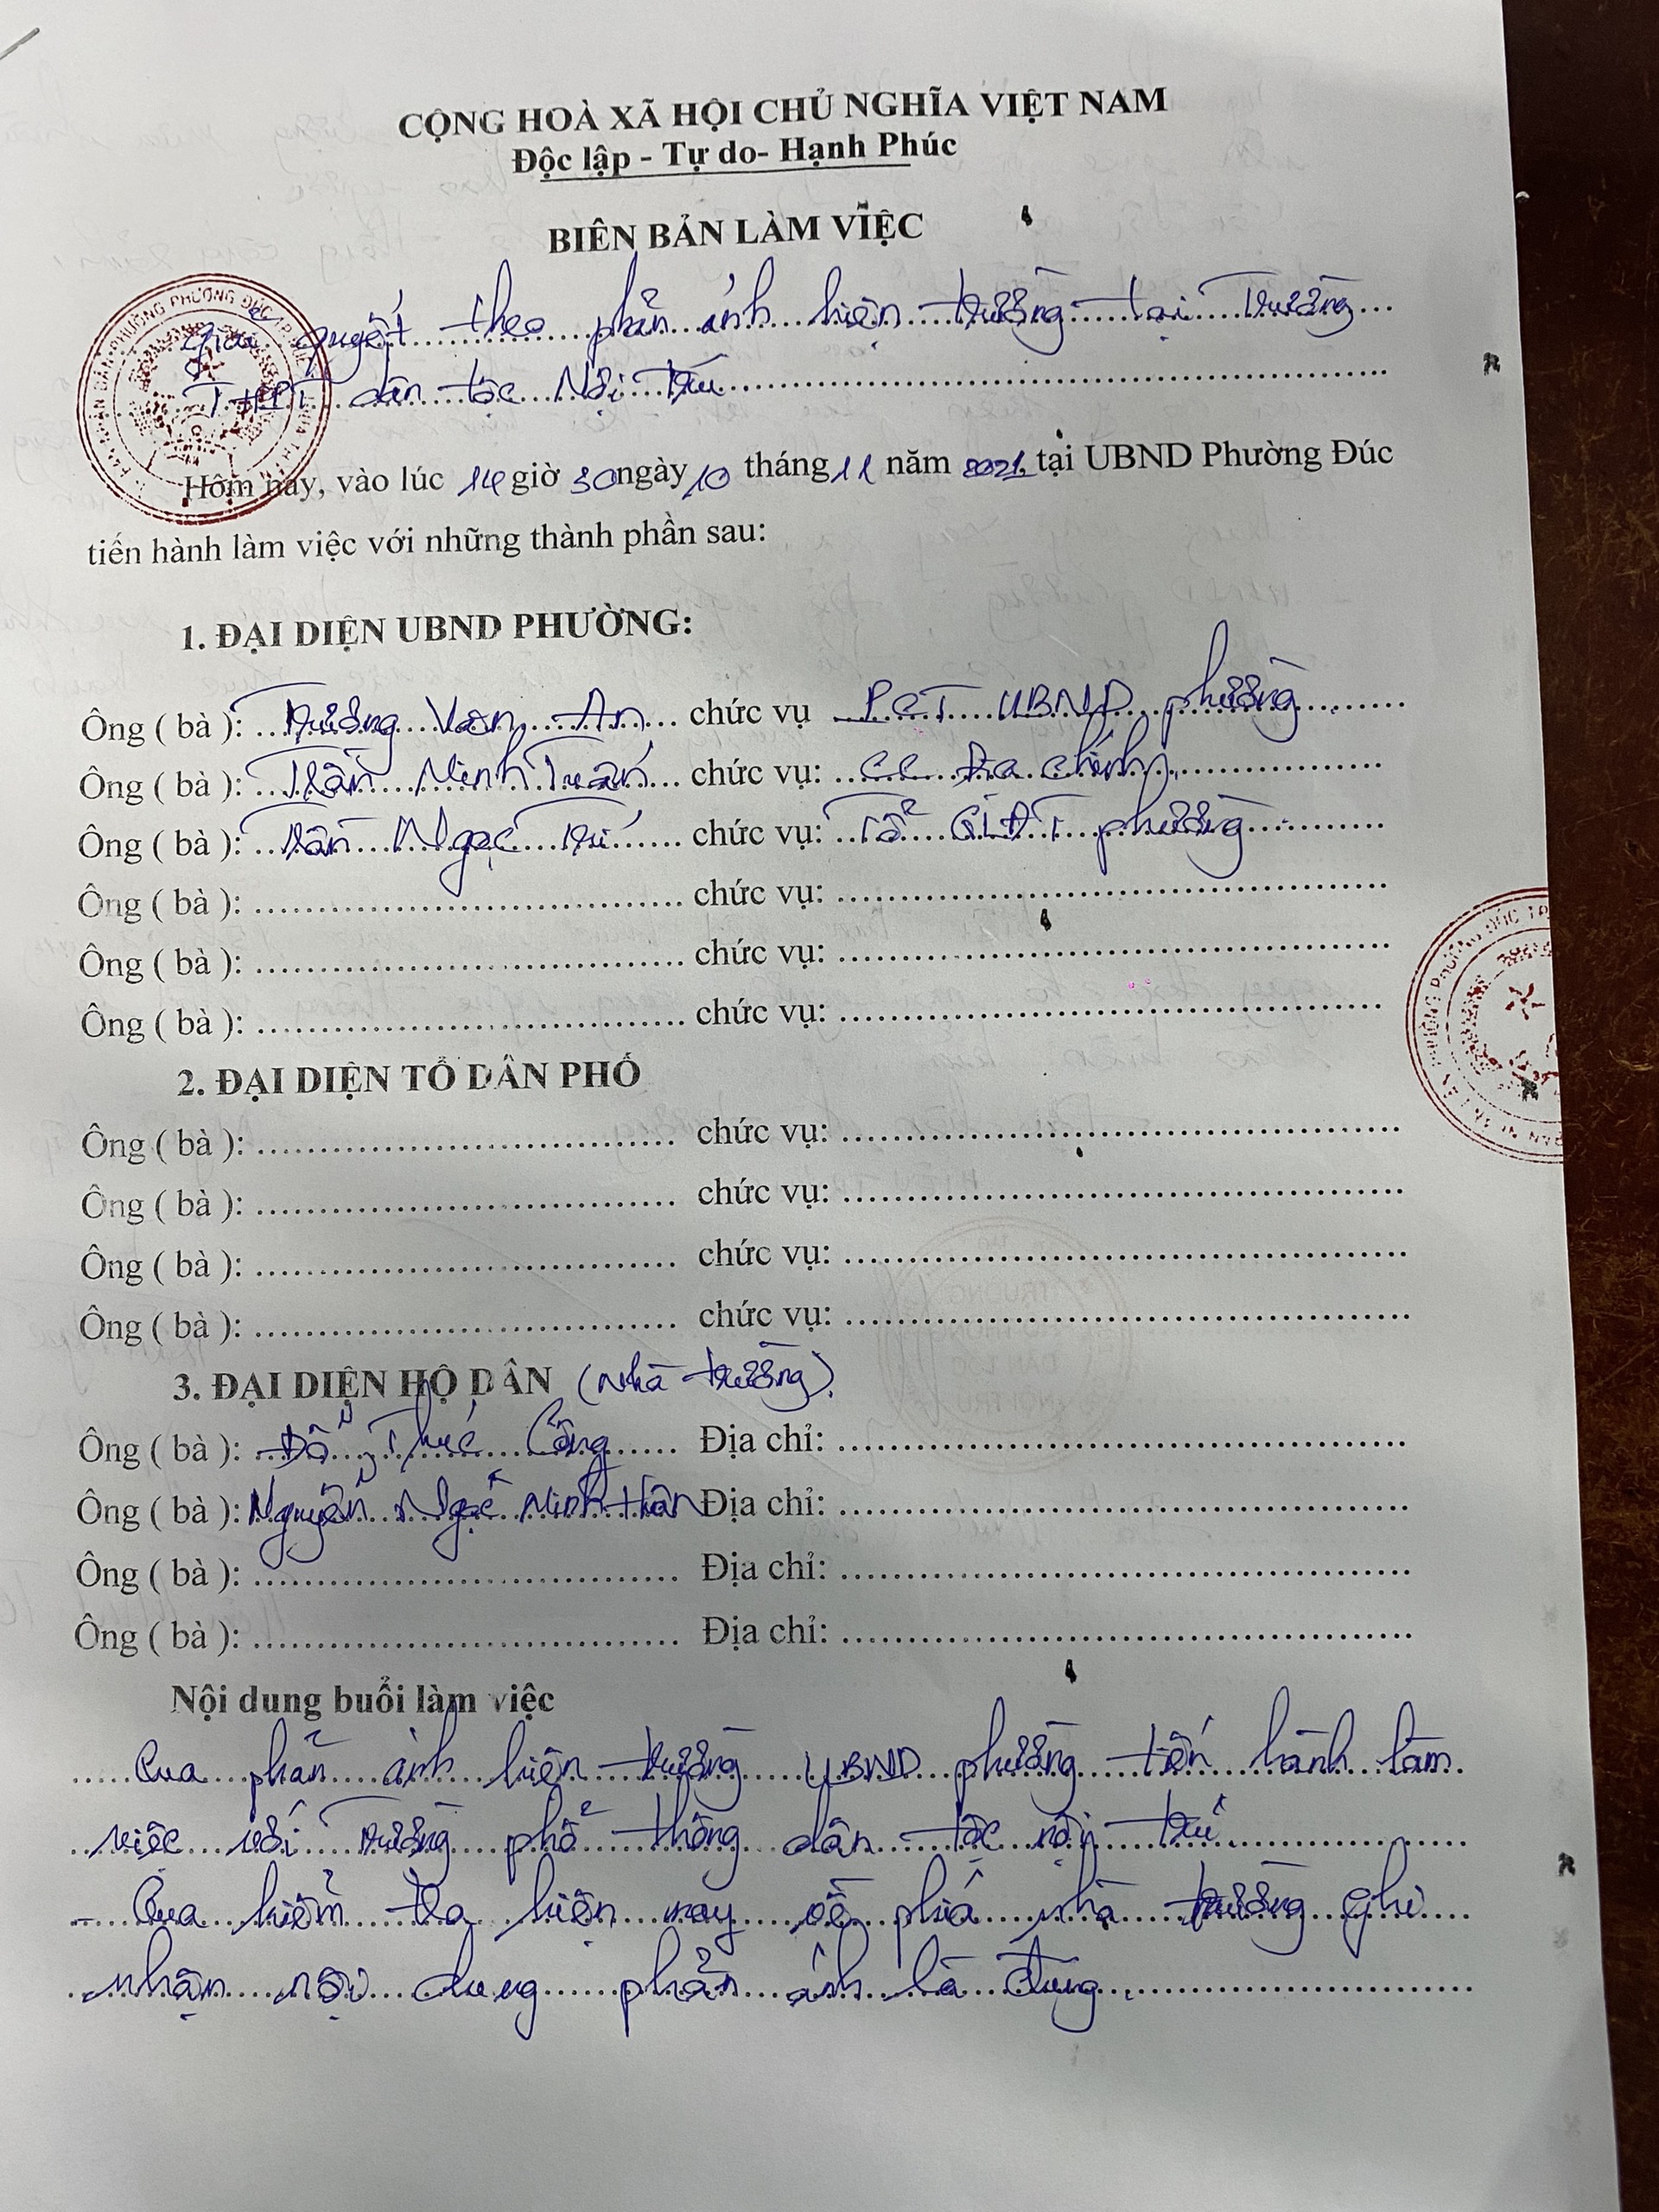 CỘNG HOÀ XÃ HỘI CHỦ NGHĨA VIỆT NAM
Độc lập - Tự do- Hạnh Phúc
BIÊN BẢN LÀM VIỆC
giải quyết theo phản ánh hiện trường tại Trường
THPT dân tộc Nội Trú
Hôm nay, vào lúc 14 giờ 30 ngày 10 tháng 11 năm 2021, tại UBND Phường Đúc
tiến hành làm việc với những thành phần sau:
1. ĐẠI DIỆN UBND PHƯỜNG:
Ông ( bà ): Trương Văn An chức vụ PCT UBND phường
Ông ( bà ): Trần Minh Tuấn chức vụ: CC Địa chính
Ông ( bà ): Trần Ngọc Trí chức vụ: Tổ phường
Ông ( bà ): chức vụ:
Ông ( bà ): chức vụ:
Ông ( bà ): chức vụ:
2. ĐẠI DIỆN TỔ DÂN PHỐ
Ông ( bà ): chức vụ:
Ông ( bà ): chức vụ:
Ông ( bà ): chức vụ:
Ông ( bà ): chức vụ:
3. ĐẠI DIỆN HỘ DÂN (Nhà trường).
Ông ( bà ): Đỗ Thúc Công Địa chỉ:
Ông ( bà ): Nguyễn Ngọc Minh Địa chỉ:
Ông ( bà ): Địa chỉ:
Ông ( bà ): Địa chỉ:
Nội dung buổi làm việc
Qua phản ánh hiện trường UBND phường tiến hành làm
việc với Trường phổ thông dân tộc nội trú.
- Qua kiểm tra hiện nay về phía nhà trường ghi
nhận nội dung phản ánh là đúng.